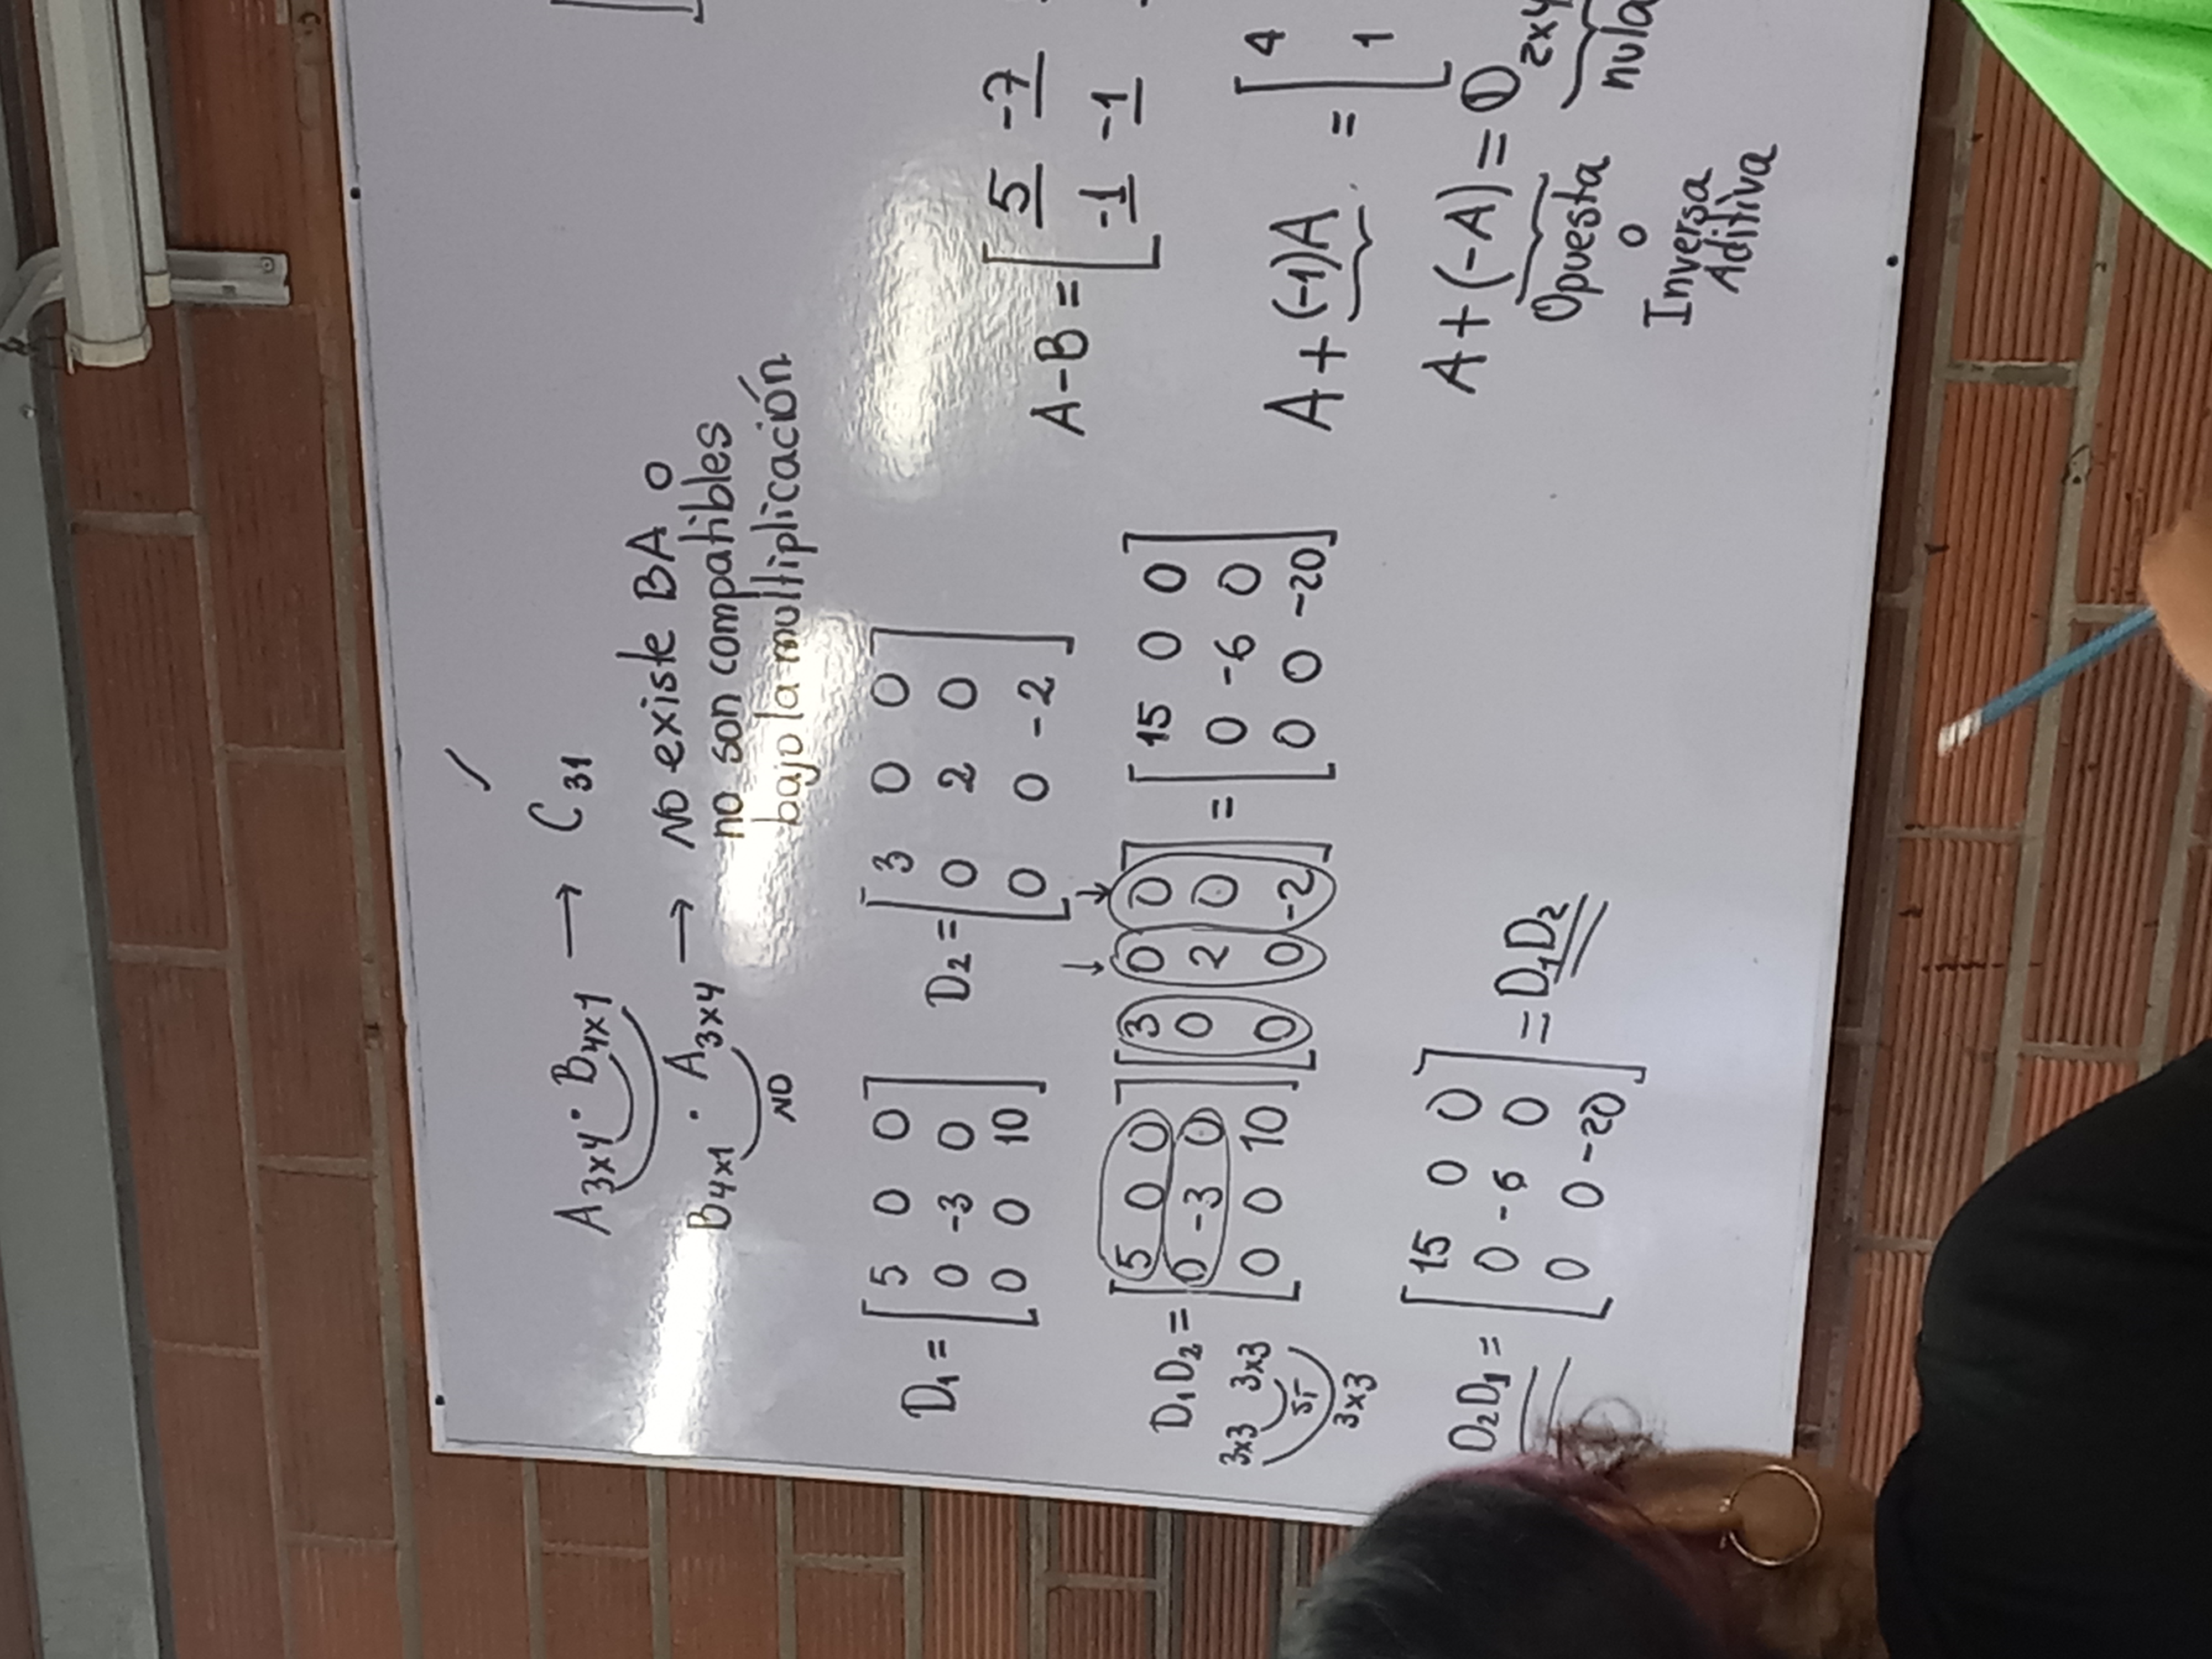 A3x4 · B4x1 → C31
B4x1 · A3x4 → NO existe BA o
no son compatibles
NO
bajo la multiplicación
D1 = [5 0 0
0 -3 0
0 0 10]
D2 = [3 0 0
0 2 0
0 0 -2]
D1D2 = [5 0 0
0 -3 0
0 0 10] [3 0 0
0 2 0
0 0 -2] = [15 0 0
0 -6 0
0 0 -20]
3x3 3x3
sí
3x3
D2D1 = [15 0 0
0 -6 0
0 0 -20] = D1D2
A-B = [5 -7
-1 -1
A + (-1)A = [4
1
A + (-A) = O2x4
Opuesta
o
Inversa
Aditiva
nula